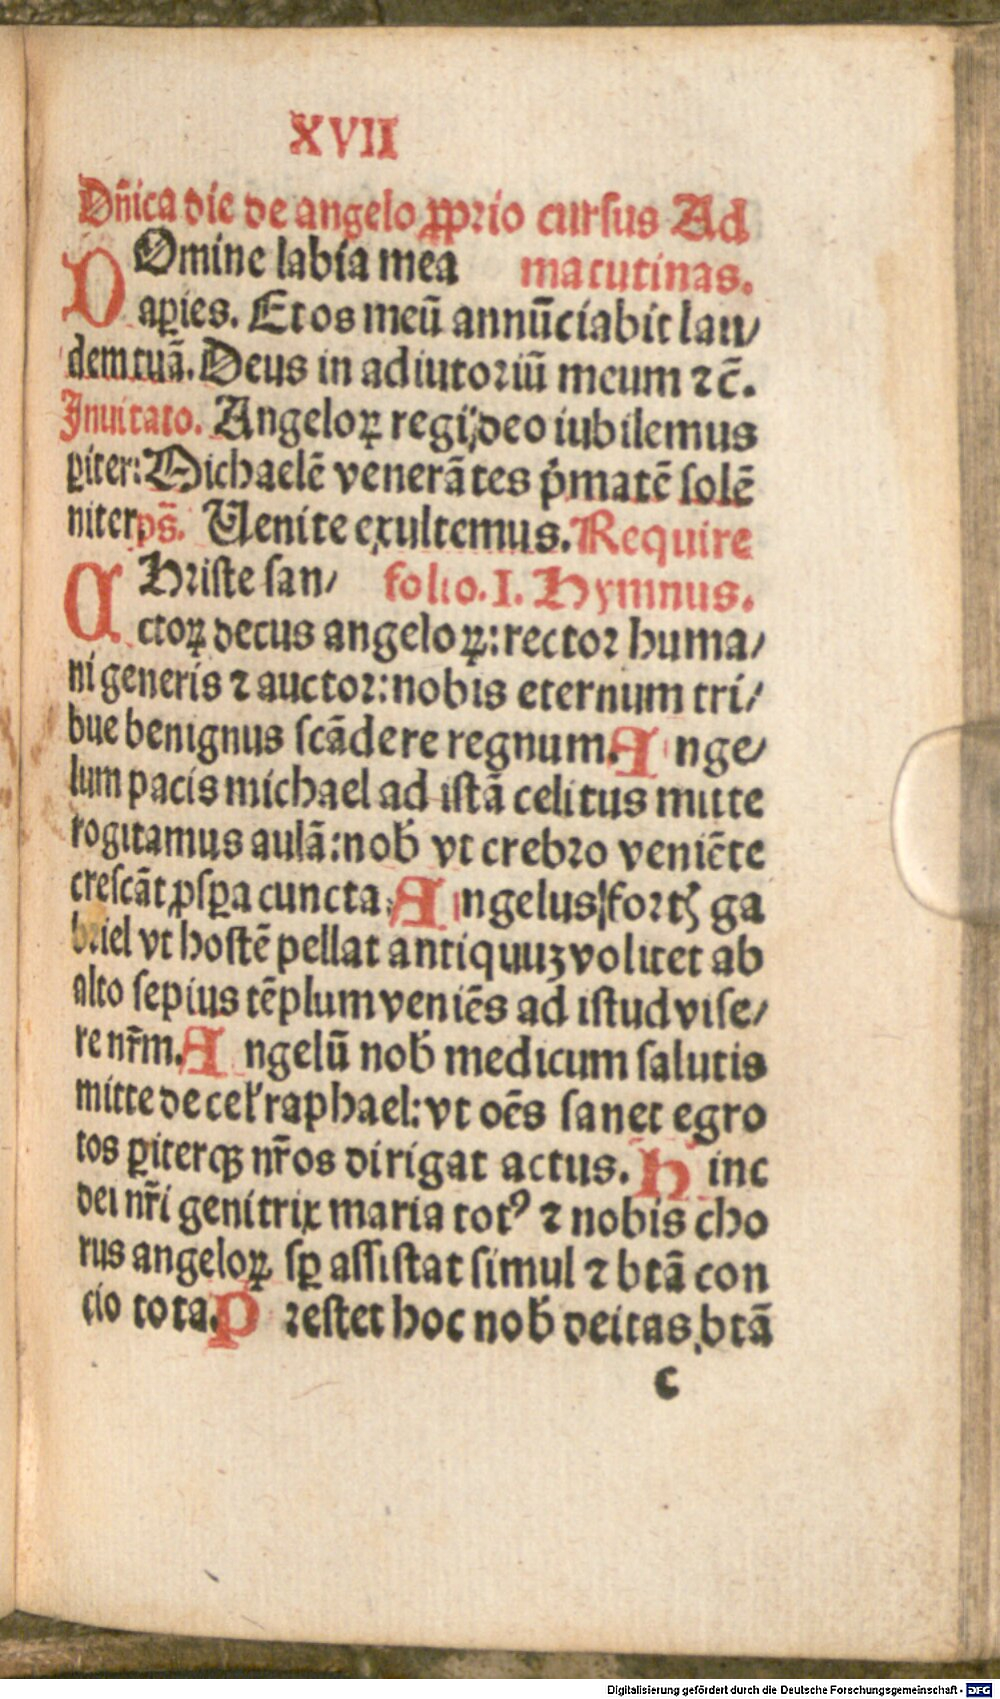 XVII
Dn̄ica die de angelo ꝓprio cursus Ad
DOmine labia mea matutinas.
aꝑies. Et os meū annūciabit lau/
dem tuā. Deus in adiutoriū meum ⁊c̄.
Inuitato. Angeloꝝ regi deo iubilemus
ꝑiter: Michaelē venerātes p̄matē solē
niter ps̄. Uenite exultemus. Require
CHriste san/ folio. I. Hymnus.
ctoꝝ decus angeloꝝ: rector huma/
ni generis ⁊ auctor: nobis eternum tri/
bue benignus scādere regnum. Ange/
lum pacis michael ad istā celitus mitte
rogitamus aulā: nob̄ vt crebro veniēte
crescāt ꝓsꝑa cuncta. Angelus fortꝭ ga
briel vt hostē pellat antiquuꝫ volitet ab
alto sepius tēplum veniēs ad istud vise/
re nr̄m. Angelū nob̄ medicum salutis
mitte de cel' raphael: vt oēs sanet egro
tos ꝑiterqꝫ nr̄os dirigat actus. Hinc
dei nr̄i genitrix maria totꝰ ⁊ nobis cho
rus angeloꝝ sꝑ assistat simul ⁊ btā con
cio tota. Prestet hoc nob̄ deitas btā
c
Digitalisierung gefördert durch die Deutsche Forschungsgemeinschaft - DFG